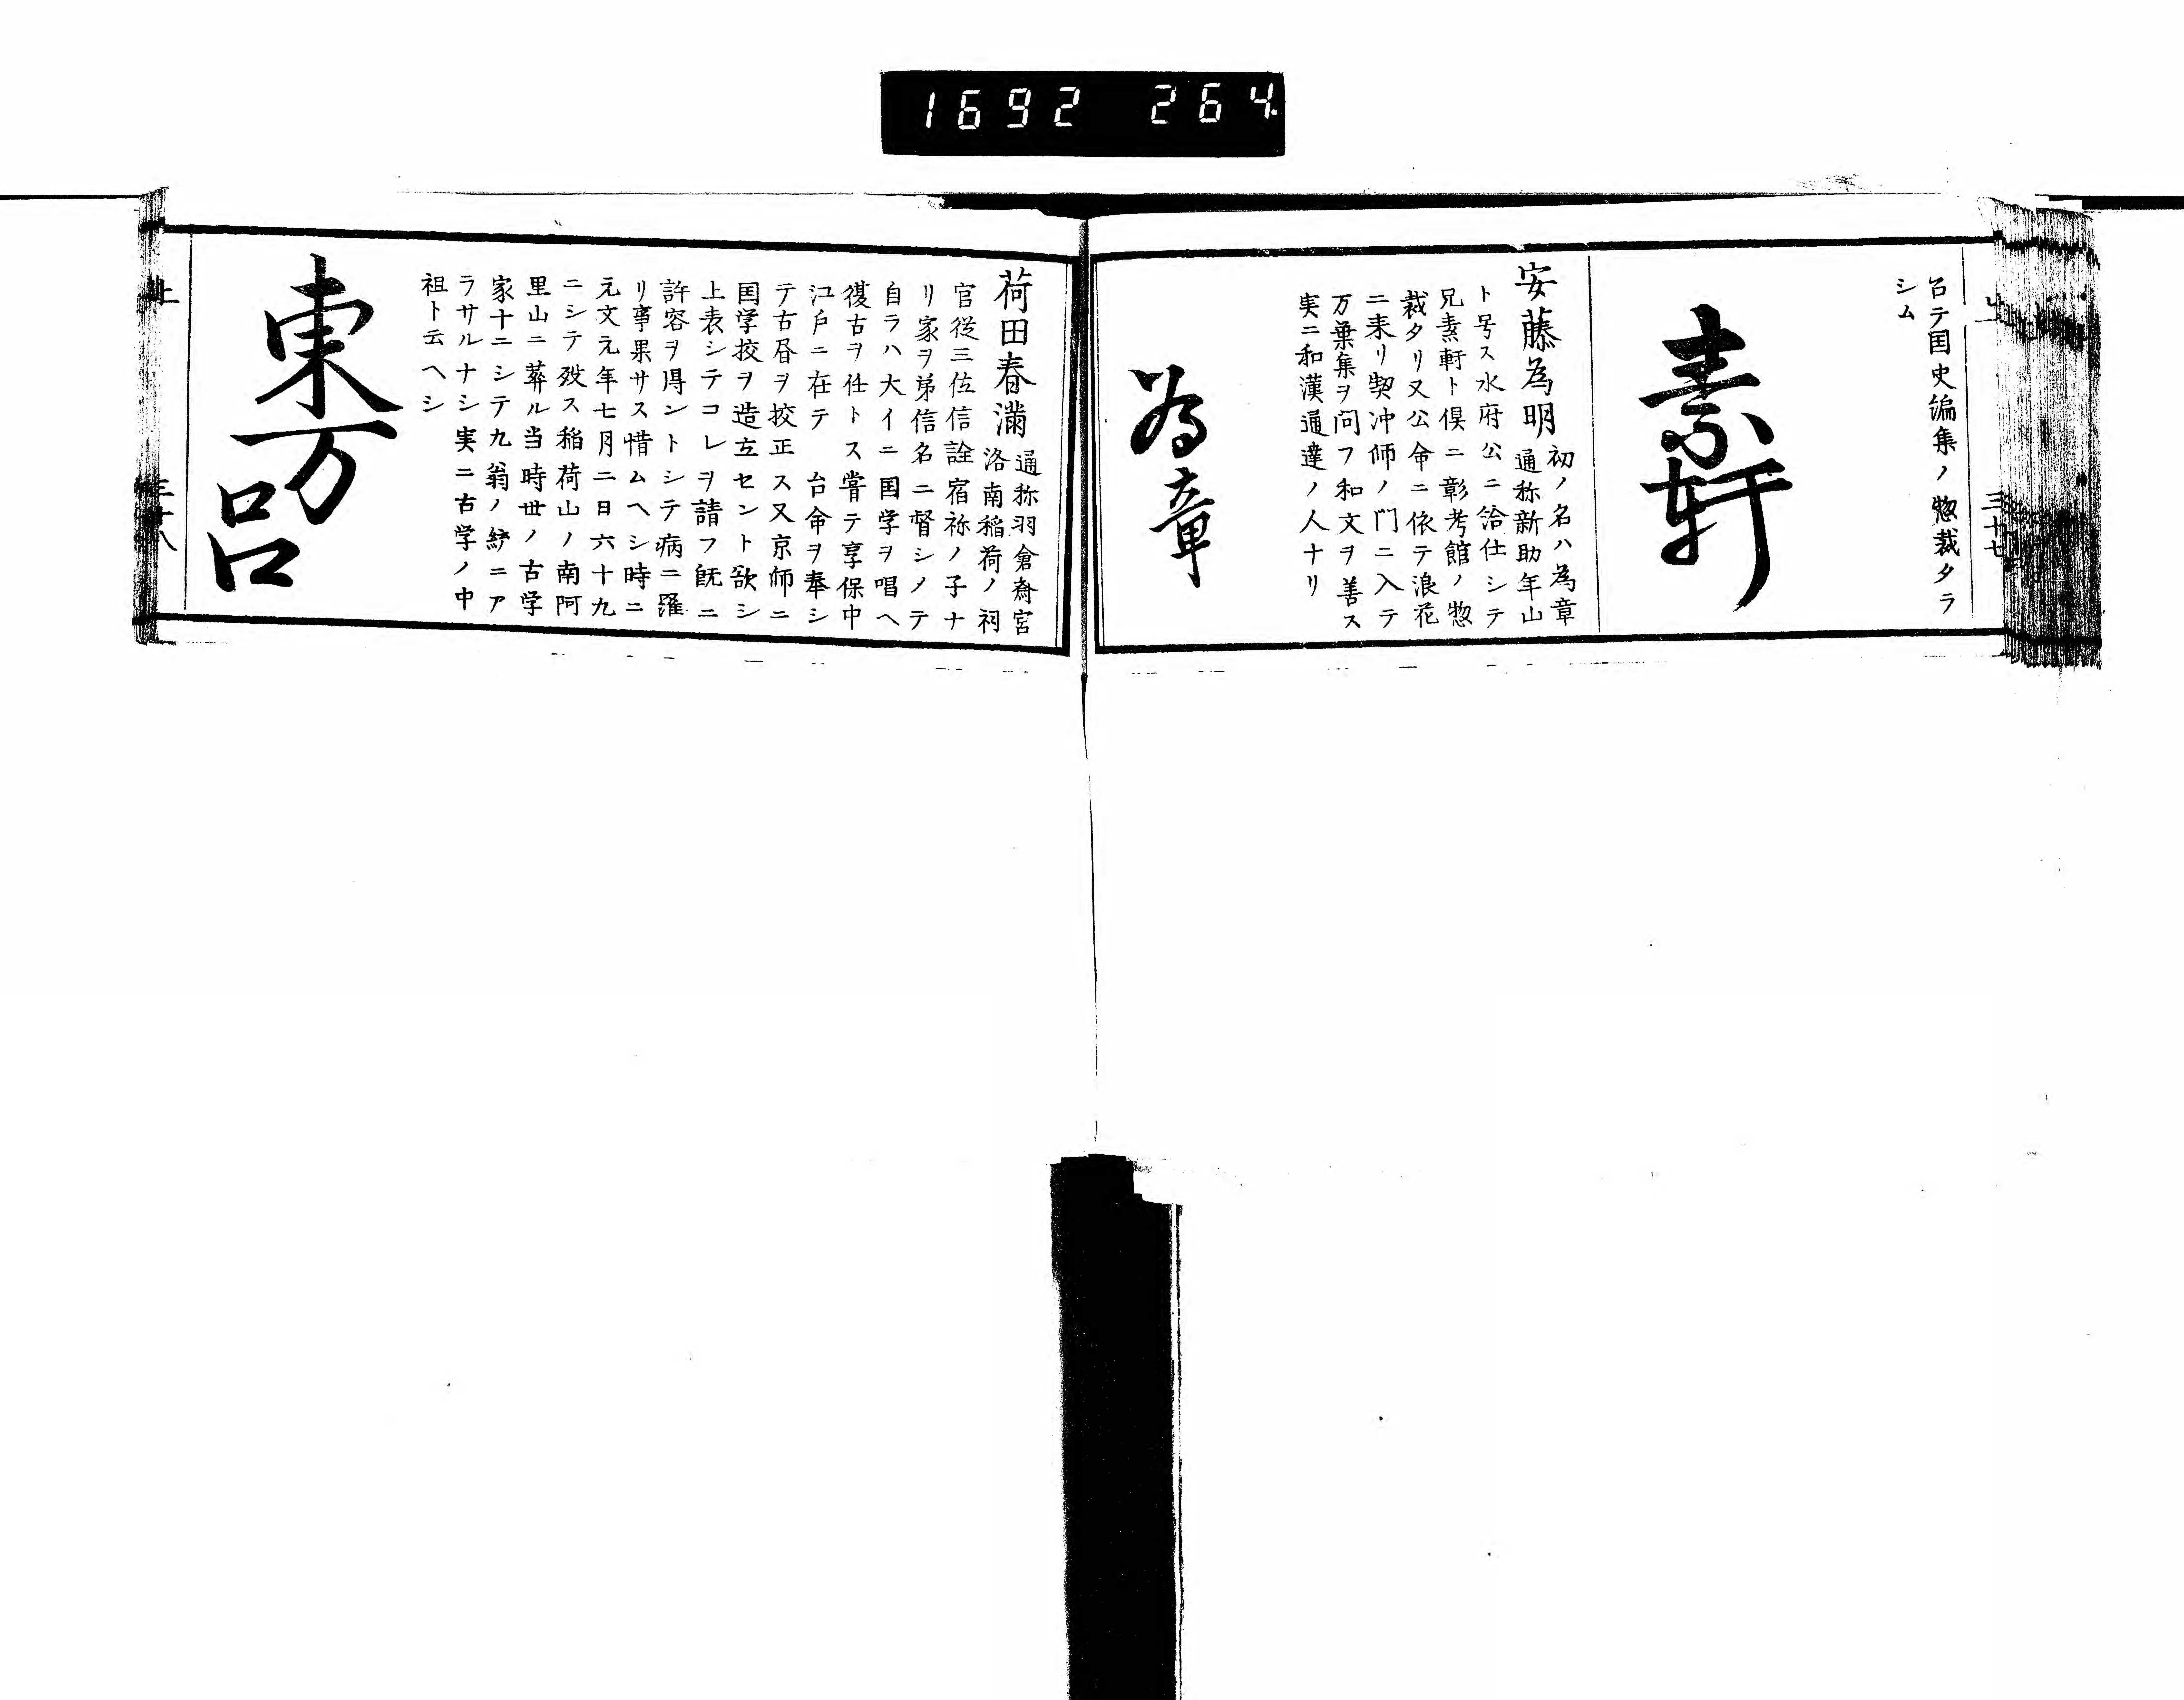 1692 264
上 三十七
召テ国史編集ノ惣裁タラ
シム
素軒
安藤為明
初ノ名ハ為章
通称新助年山
ト号ス水府公ニ給仕シテ
兄素軒ト倶ニ彰考館ノ惣
裁タリ又公命ニ依テ浪花
ニ来リ契冲師ノ門ニ入テ
万葉集ヲ問フ和文ヲ善ス
実ニ和漢通達ノ人ナリ
為章
荷田春満
通称羽倉斎宮
洛南稲荷ノ祠
官従三位信詮宿祢ノ子ナ
リ家ヲ弟信名ニ督シメテ
自ラハ大イニ国学ヲ唱ヘ
復古ヲ任トス嘗テ享保中
江戸ニ在テ 台命ヲ奉シ
テ古昏ヲ挍正ス又京師ニ
国学挍ヲ造立セント欲シ
上表シテコレヲ請フ既ニ
許容ヲ得ントシテ病ニ罹
リ事果サス惜ムヘシ時ニ
元文元年七月二日六十九
ニシテ歿ス稲荷山ノ南阿
里山ニ葬ル当時世ノ古学
家十ニシテ九翁ノ統ニア
ラサルナシ実ニ古学ノ中
祖ト云ヘシ
東万呂
上 三十八